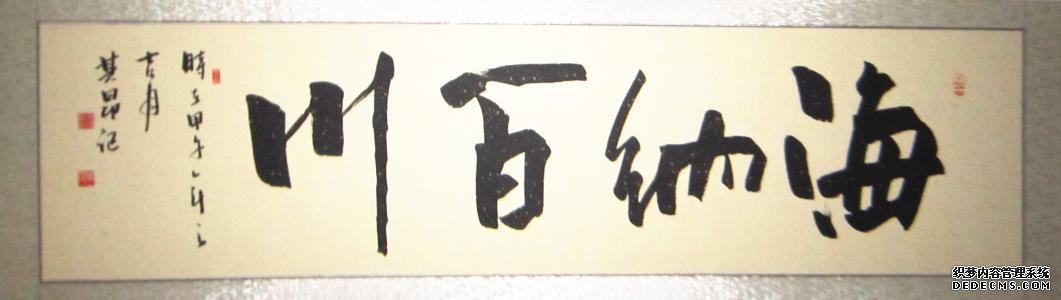 海纳百川
時在甲午年之
吉月
其昂记
织梦内容管理系统
DEDECMS.COM